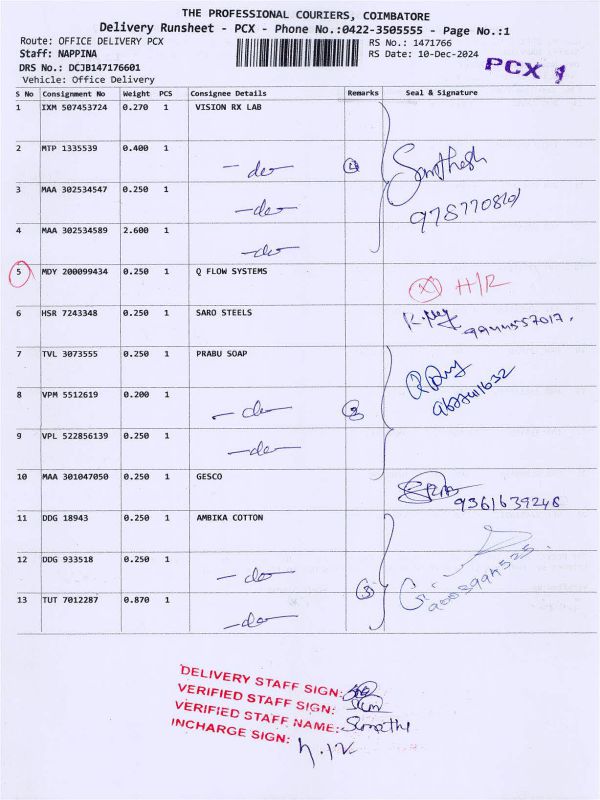 THE PROFESSIONAL COURIERS, COIMBATORE
Delivery Runsheet - PCX - Phone No.:0422-3505555 - Page No.:1
Route: OFFICE DELIVERY PCX RS No.: 1471766
Staff: NAPPINA RS Date: 10-Dec-2024
DRS No.: DCJB147176601 PCX 1
Vehicle: Office Delivery
S No Consignment No Weight PCS Consignee Details Remarks Seal & Signature
1 IXM 507453724 0.270 1 VISION RX LAB
2 MTP 1335539 0.400 1 -do- 4
3 MAA 302534547 0.250 1 -do-
4 MAA 302534589 2.600 1 -do-
5 MDY 200099434 0.250 1 Q FLOW SYSTEMS X H/R
6 HSR 7243348 0.250 1 SARO STEELS
7 TVL 3073555 0.250 1 PRABU SOAP
8 VPM 5512619 0.200 1 -do- 3
9 VPL 522856139 0.250 1 -do-
10 MAA 301047050 0.250 1 GESCO 9361639246
11 DDG 18943 0.250 1 AMBIKA COTTON
12 DDG 933518 0.250 1 -do- 3
13 TUT 7012287 0.870 1 -do-
DELIVERY STAFF SIGN:
VERIFIED STAFF SIGN:
VERIFIED STAFF NAME: Sumathi
INCHARGE SIGN: